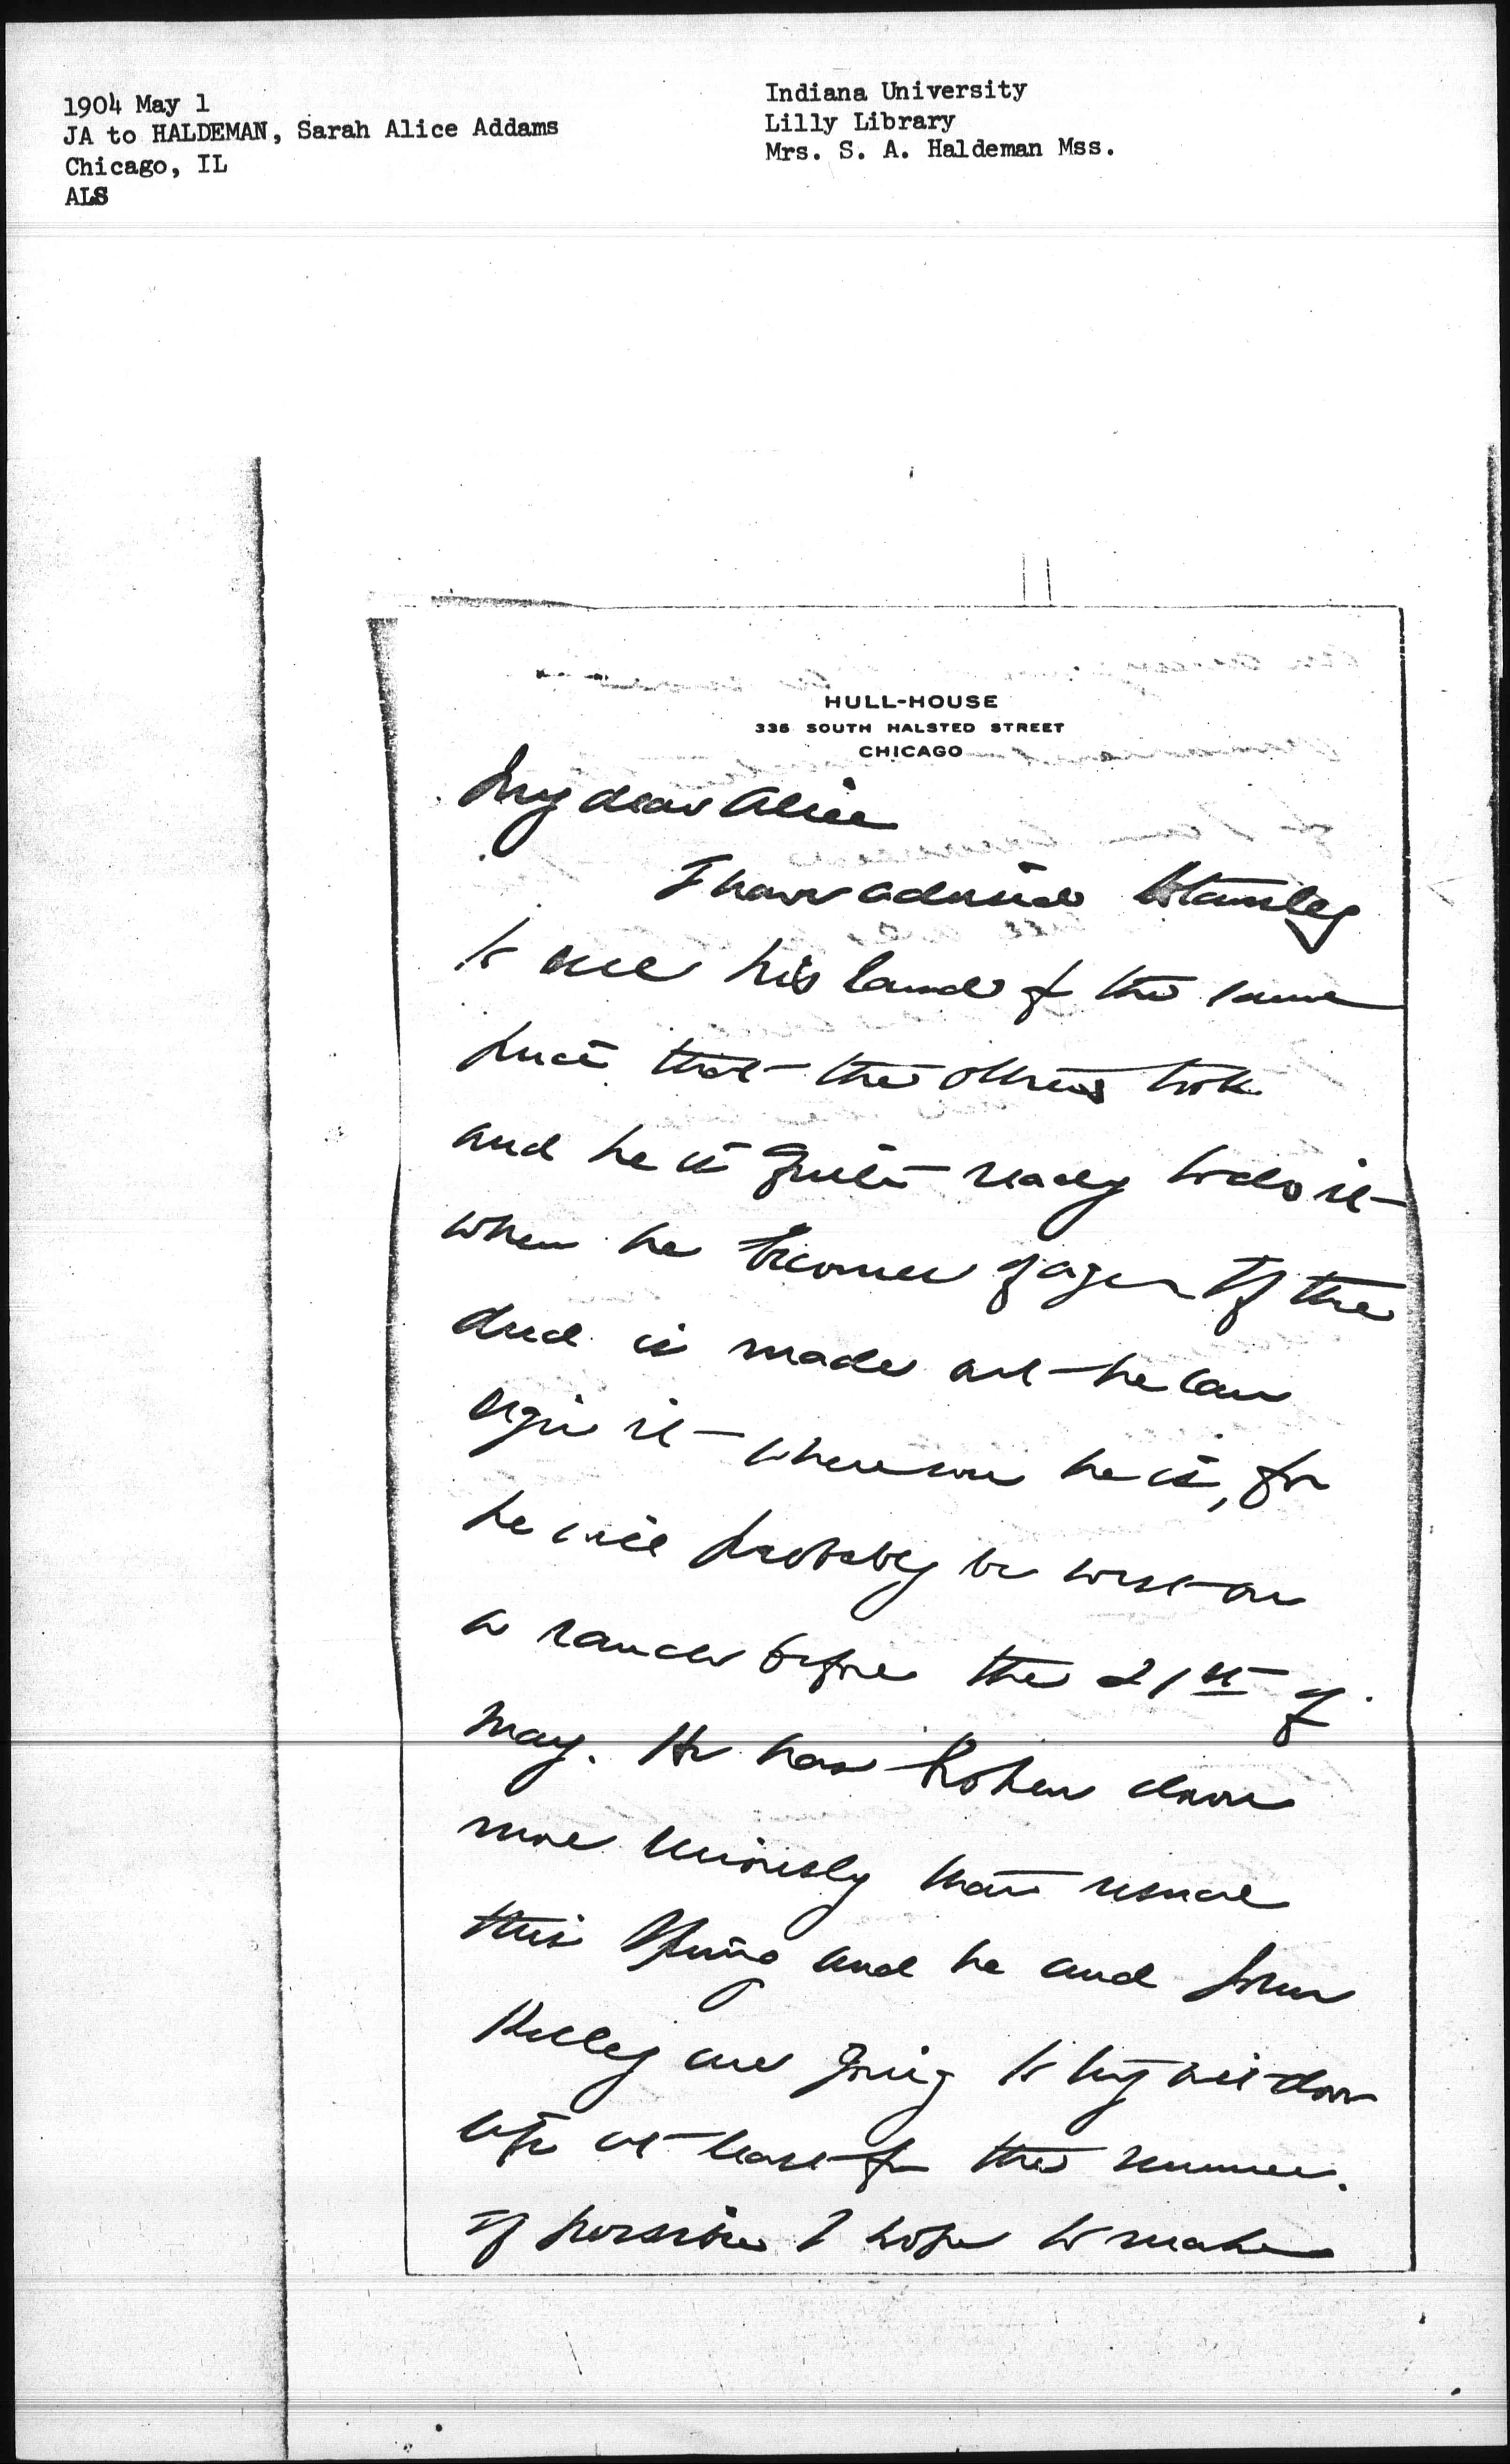 1904 May 1
JA to HALDEMAN, Sarah Alice Addams
Chicago, IL
ALS
Indiana University
Lilly Library
Mrs. S. A. Haldeman Mss.
HULL-HOUSE
335 SOUTH HALSTED STREET
CHICAGO
My dear Alice
I have advised Stanley
to sell his land for the same
price that the others took
and he is quite ready to do it
when he becomes of age. If the
deed is made out he can
sign it wherever he is, for
he will probably be west on
a ranch before the 21st of
May. He has broken down
more seriously than usual
this Spring and he and John
Kelley are going to try out door
life at least for the summer.
If possible I hope to make